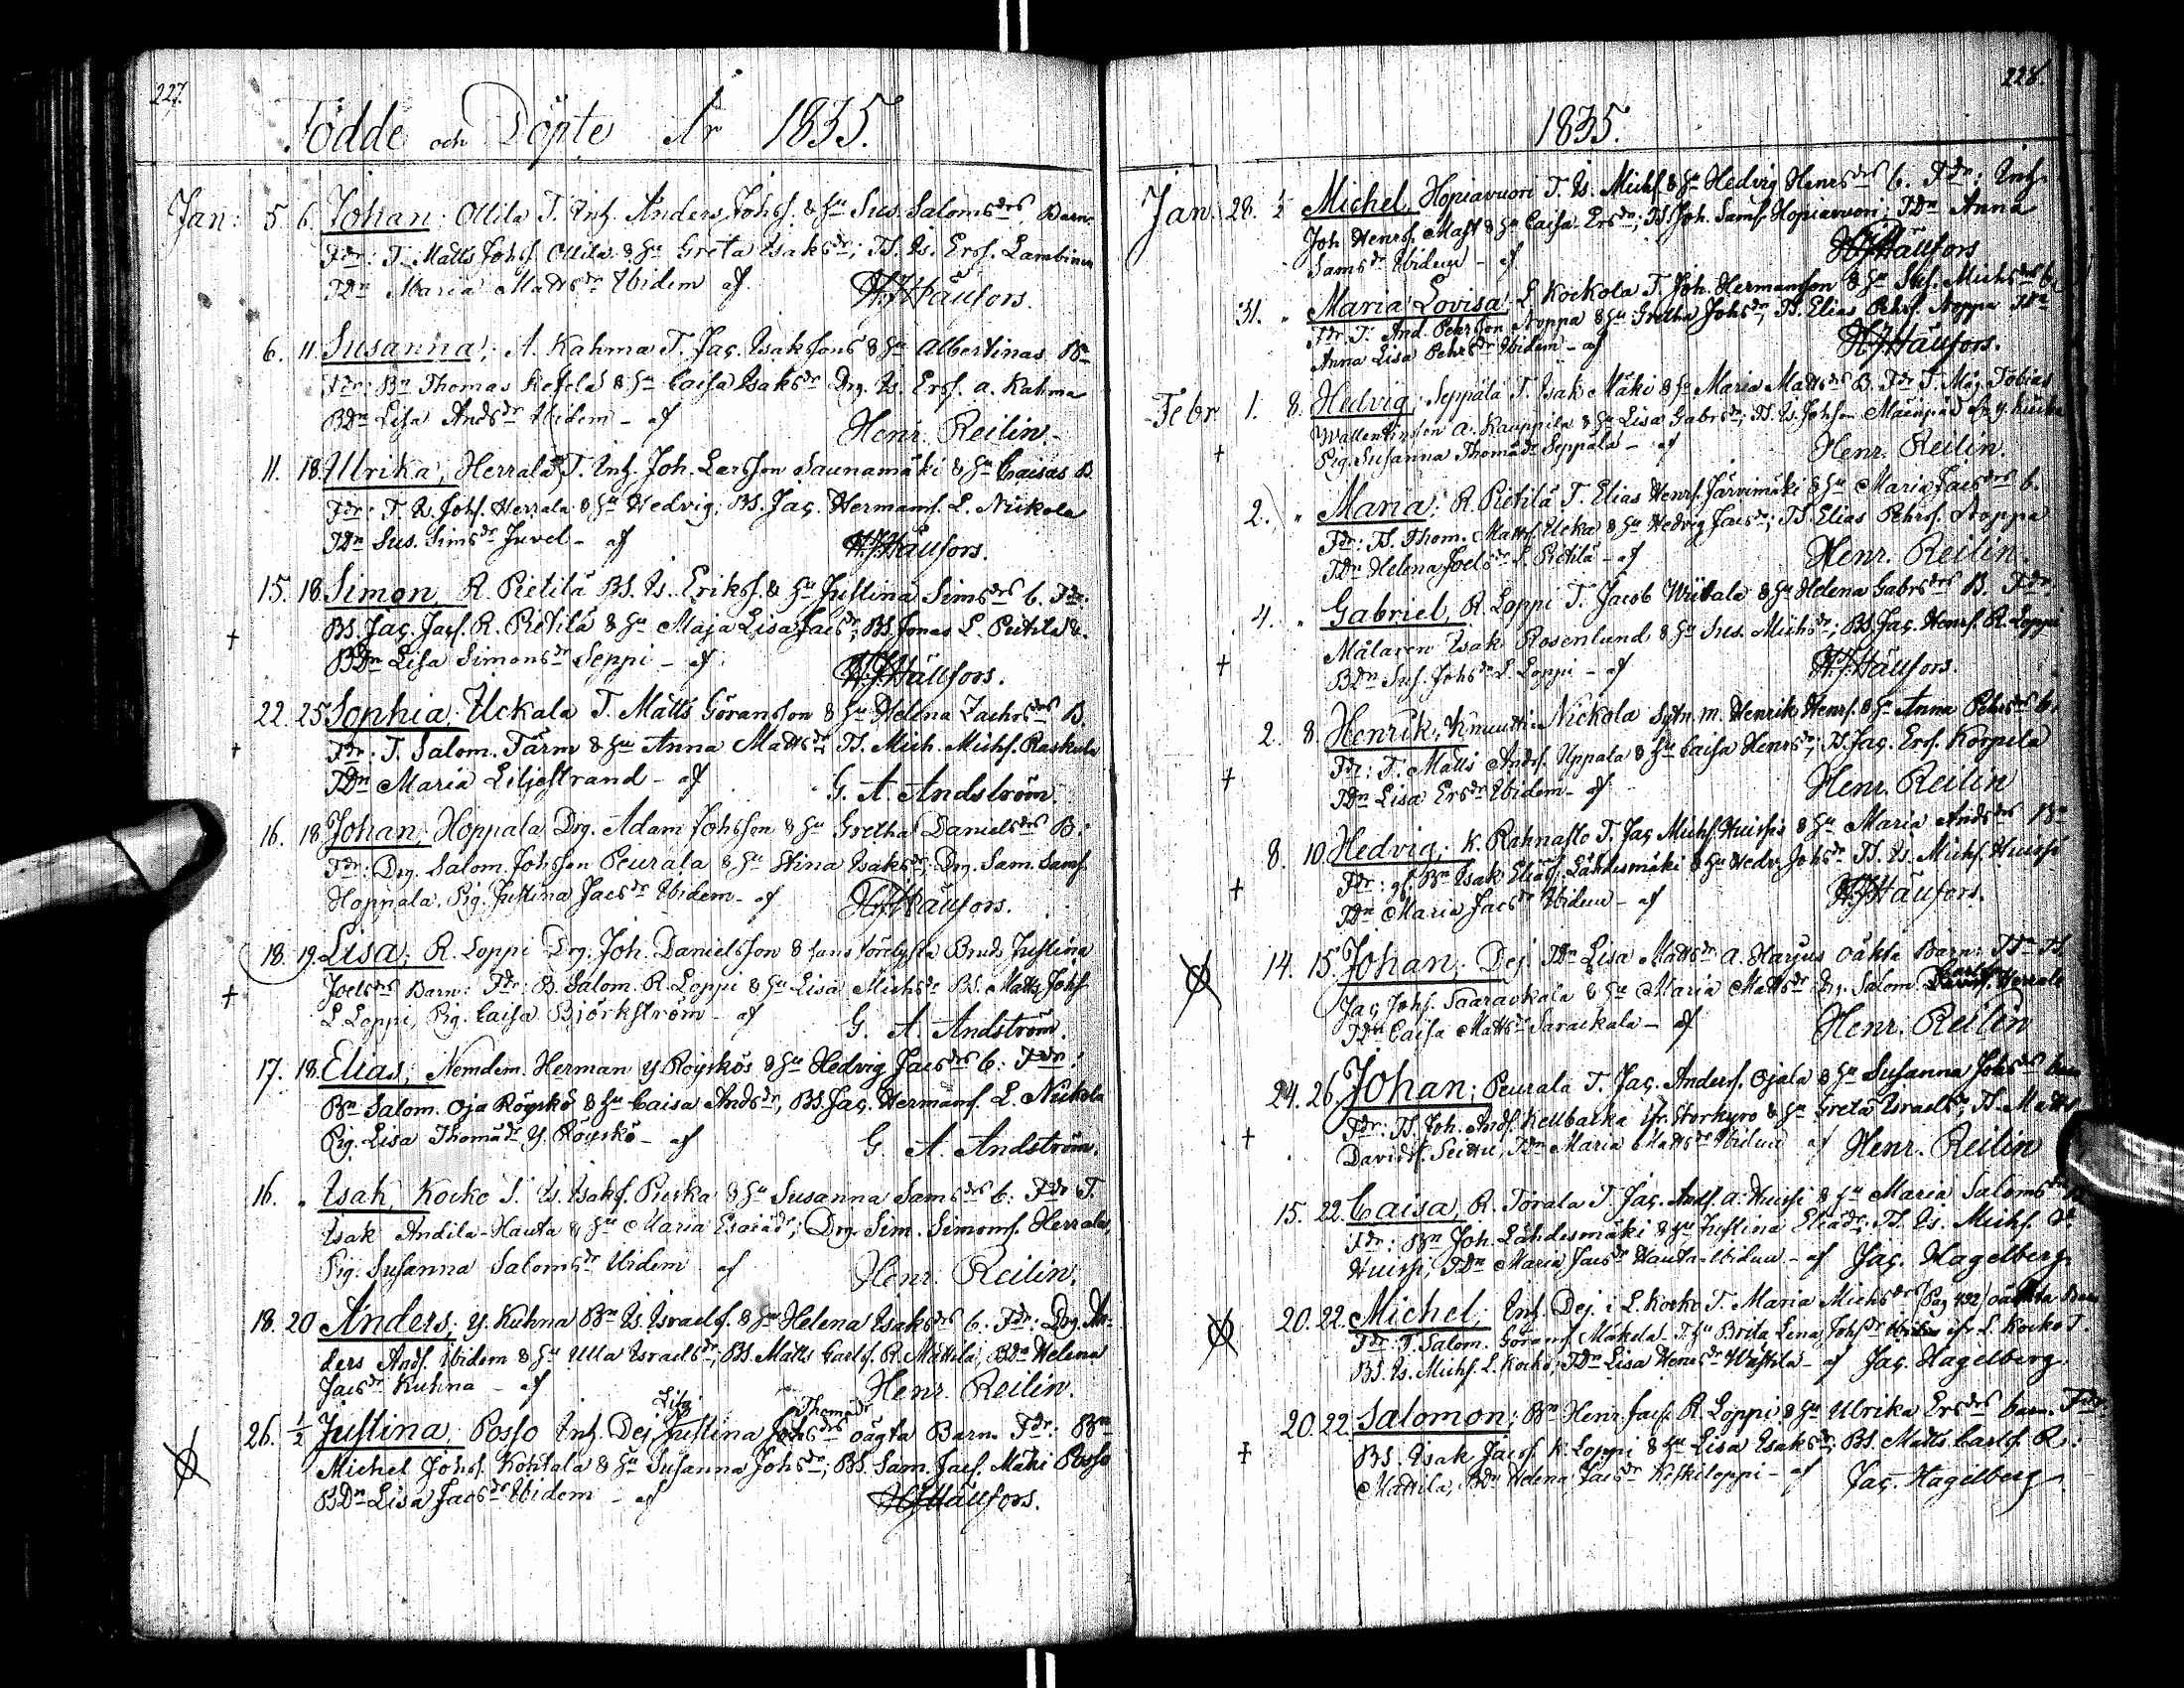 227.
Födde och Döpte År 1835.
Jan: 5. 6. Johan; Ollila T. Inh. Anders Johsf. & Hu Sus. Salomsdrs Barn
Fdr: T. Matts Johsf. Ollila & Hu Greta Isaksdr; TS. Is. Ersf. Lambinen
TDn Maria Mattsdr Ibidem af H.J. Hällfors.
6. 11. Susanna; A. Kahma T. Jac. Isakssons & Hu Albertinas Bn
Fdr: Bn Thomas Kefela & Hu Caisa Isaksdr Drg. Is. Ersf. A. Kahma
BDn Lisa Andsdr Ibidem - af Henr. Reilin.
11. 18. Ulrika; Herrala T. Inh. Joh. Larsson Saunamäki & Hu Caisas B.
Fdr: T. Is. Johsf. Herrala & Hu Hedvig; BS. Jac. Hermansf. L. Nickola
TDn Sus. Simsdr Juvel - af H.J. Hällfors.
15. 18. Simon; R. Pietilä BS. Is. Eriksf. & Hu Justina Simsdrs b. Fdr:
BS. Jac. Jacf. R. Pietilä & Hu Maja Lisa Jacsdr; BS. Jonas L. Pietilä &.
BDn Lisa Simonsdr Seppi - af H.J. Hällfors.
22. 25. Sophia; Uckala T. Matts Göransson & Hu Helena Zachrsdrs B.
Fdr: T. Salom. Tärm & Hu Anna Mattsdr; TS. Mich. Michf. Raskala
TDn Maria Liljestrand - af G. A. Andström.
16. 18. Johan; Hoppala Drg. Adam Johsson & Hu Gretha Danielsdrs B:
Fdr: Drg. Salom. Johsson Peurala & Hu Stina Isaksdr; Drg. Sam. Samf.
Hoppala, Pig. Justina Jacsdr Ibidem - af H.J. Hällfors.
18. 19. Lisa; R. Loppi Drg. Joh. Danielsson & hans förelofsta Bruds Justina
Joelsdrs Barn: Fdr: B. Salom. R. Loppi & Hu Lisa Michsdr BS. Matts Johsf
L. Loppi, Pig. Caisa Björkström - af G. A. Andström.
17. 18. Elias; Nemdem. Herman Y. Röyskös & Hu Hedvig Jacsdrs b: Fdr:
Bn Salom. Oja Röyskö & Hu Caisa Andsdr; BS. Jac. Hermansf. L. Nickola
Pig. Lisa Thomædr Y. Röyskö - af G. A. Andström.
16. " Isak; Kocko T. Is. Isaksf. Ruska & Hu Susanna Samsdrs b: Fdr T.
Isak Andila-Hauta & Hu Maria Esaiædr; Drg. Sim. Simonsf. Herrala,
Pig. Susanna Salomsdr Ibidem af Henr. Reilin.
18. 20. Anders; Y. Kuhna Bn Is. Israelsf. & Hu Helena Isaksdrs b. Fdr: Drg. An-
ders Andf. Ibidem & Hu Ulla Israelsdr; BS. Matts Carlsf. R. Mattila, BDn Helena
Jacsdr Kuhna - af Henr. Reilin.
Lisa Thomædr
26. 1/2 Justina; Posso Inh. Dej Justina Johsdrs oägta Barn Fdr: Bn
Michel Johsf. Kohtala & Hu Susanna Johsdr; BS. Sam. Jacf. Mäki Posso
BDn Lisa Jacsdr Ibidem - af H.J. Hällfors.
228.
1835.
Jan. 28. 1/2 Michel; Hopiavuori T. Is. Michf. & Hu Hedvig Henrsdrs b. Fdr: Inh.
Joh Henrsf. Mast & Hu Caisa Ersdr; TS. Joh. Samsf. Hopiavuori, TDn Anna
Samsdr Ibidem - af H.J. Hällfors
31. " Maria Lovisa; L. Kockola T. Joh. Hermansson & Hu Sus. Michsdrs b.
Fdr: T. And. Pehrsson Noppa & Hu Gretha Johsdr; TS. Elias Pehrsf. Noppa TDn
Anna Lisa Pehrsdr Ibidem - af H.J. Hällfors.
Febr 1. 8. Hedvig; Seppälä T. Isak Mäki & Hu Maria Mattsdrs B. Fdr T. Måg Tobias
Wallentinsson A. Kauppila & Hu Lisa Gabrsdr; TS. Is. Johson
Pig. Susanna Thomædr Seppälä - af Henr. Reilin.
2. " Maria; R. Pietilä T. Elias Henrsf. Järvimäki & Hu Maria Jacsdrs b.
Fdr: TS. Thom. Mattsf. Ucka & Hu Hedvig Jacsdr; TS. Elias Pehrsf. Noppa
TDn Helena Joelsdr L. Pietilä - af Henr. Reilin.
4. " Gabriel; R. Loppi T. Jacob Wiitala & Hu Helena Gabrsdrs B. Fdr:
Målaren Isak Rosenlund & Hu Sus. Michsdr; BS. Jac. Henrsf. R. Loppi
BDn Sus. Johsdr L. Loppi - af H.J. Hällfors.
2. 8. Henrik; Knuutti-Nickola Sytn. m. Henrik Henrsf. & Hu Anna Pehrsdrs b.
Fdr: T. Matts Andsf. Uppala & Hu Caisa Henrsdr; TS. Jac. Ersf. Korpela
TDn Lisa Ersdr Ibidem - af Henr. Reilin
8. 10. Hedvig; K. Rahnasto T. Jac. Michsf. Huissis & Hu Maria Andsdrs Bn
Fdr: gf. Bn Isak Eliæsf. Lähdesmäki & Hu Hedv. Johsdr TS. Is. Michf. Huissi
TDn Maria Jacsdr Ibidem - af H.J. Hällfors.
14. 15. Johan; Dej. TDn Lisa Mattsdr A. Harjus oäkta Barn: Fdr TS.
Jac. Johsf. Saarackala & Hu Maria Mattsdr Drg. Salom. Carlsson Herrala
TDn Caisa Mattsdr Sarackala - af Henr. Reilin
24. 26. Johan; Peurala T. Jac. Andersf. Ojala & Hu Susanna Johsdrs barn
Fdr: TS. Joh. Andf. Kellbacka ifr. Storkyro & Hu Greta Israelsdr, TS. Matts
Davidsf. Seittu, TDn Maria Mattsdr Ibidem af Henr. Reilin
15. 22. Caisa; R. Torala T. Jac. Andf. A. Huissi & Hu Maria Salomsdrs
Fdr: Bn Joh. Lähdesmäki & Hu Justina Eliædr; TS. Is. Michf.
Huissi, TDn Maria Jacsdr Hauta-Ibidem - af Jac. Hagelberg.
20. 22. Michel; Inh. Dej. i L. Kocko T. Maria Michsdrs (Pag 492) oäkta barn
Fdr: T. Salom. Göransf. Mäkelä T. Hu Brita Lena Johsdr ifr. L. Kocko T.
BS. Is. Michf. L. Kocko, TDn Lisa Henrsdr Wästilä - af Jac. Hagelberg.
20. 22. Salomon; Bn Henr. Jacf. R. Loppi & Hu Ulrika Ersdrs barn. Fdr:
BS. Isak Jacsf. K. Loppi & Hu Lisa Isaksdr; BS. Matts Carlsf. R.
Mattila, BDn Helena Jacsdr Keskiloppi - af Jac. Hagelberg